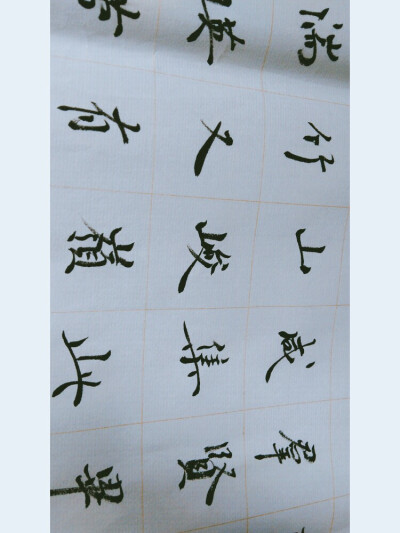 羣賢畢
咸集此
山峻領
竹又有
湍暎